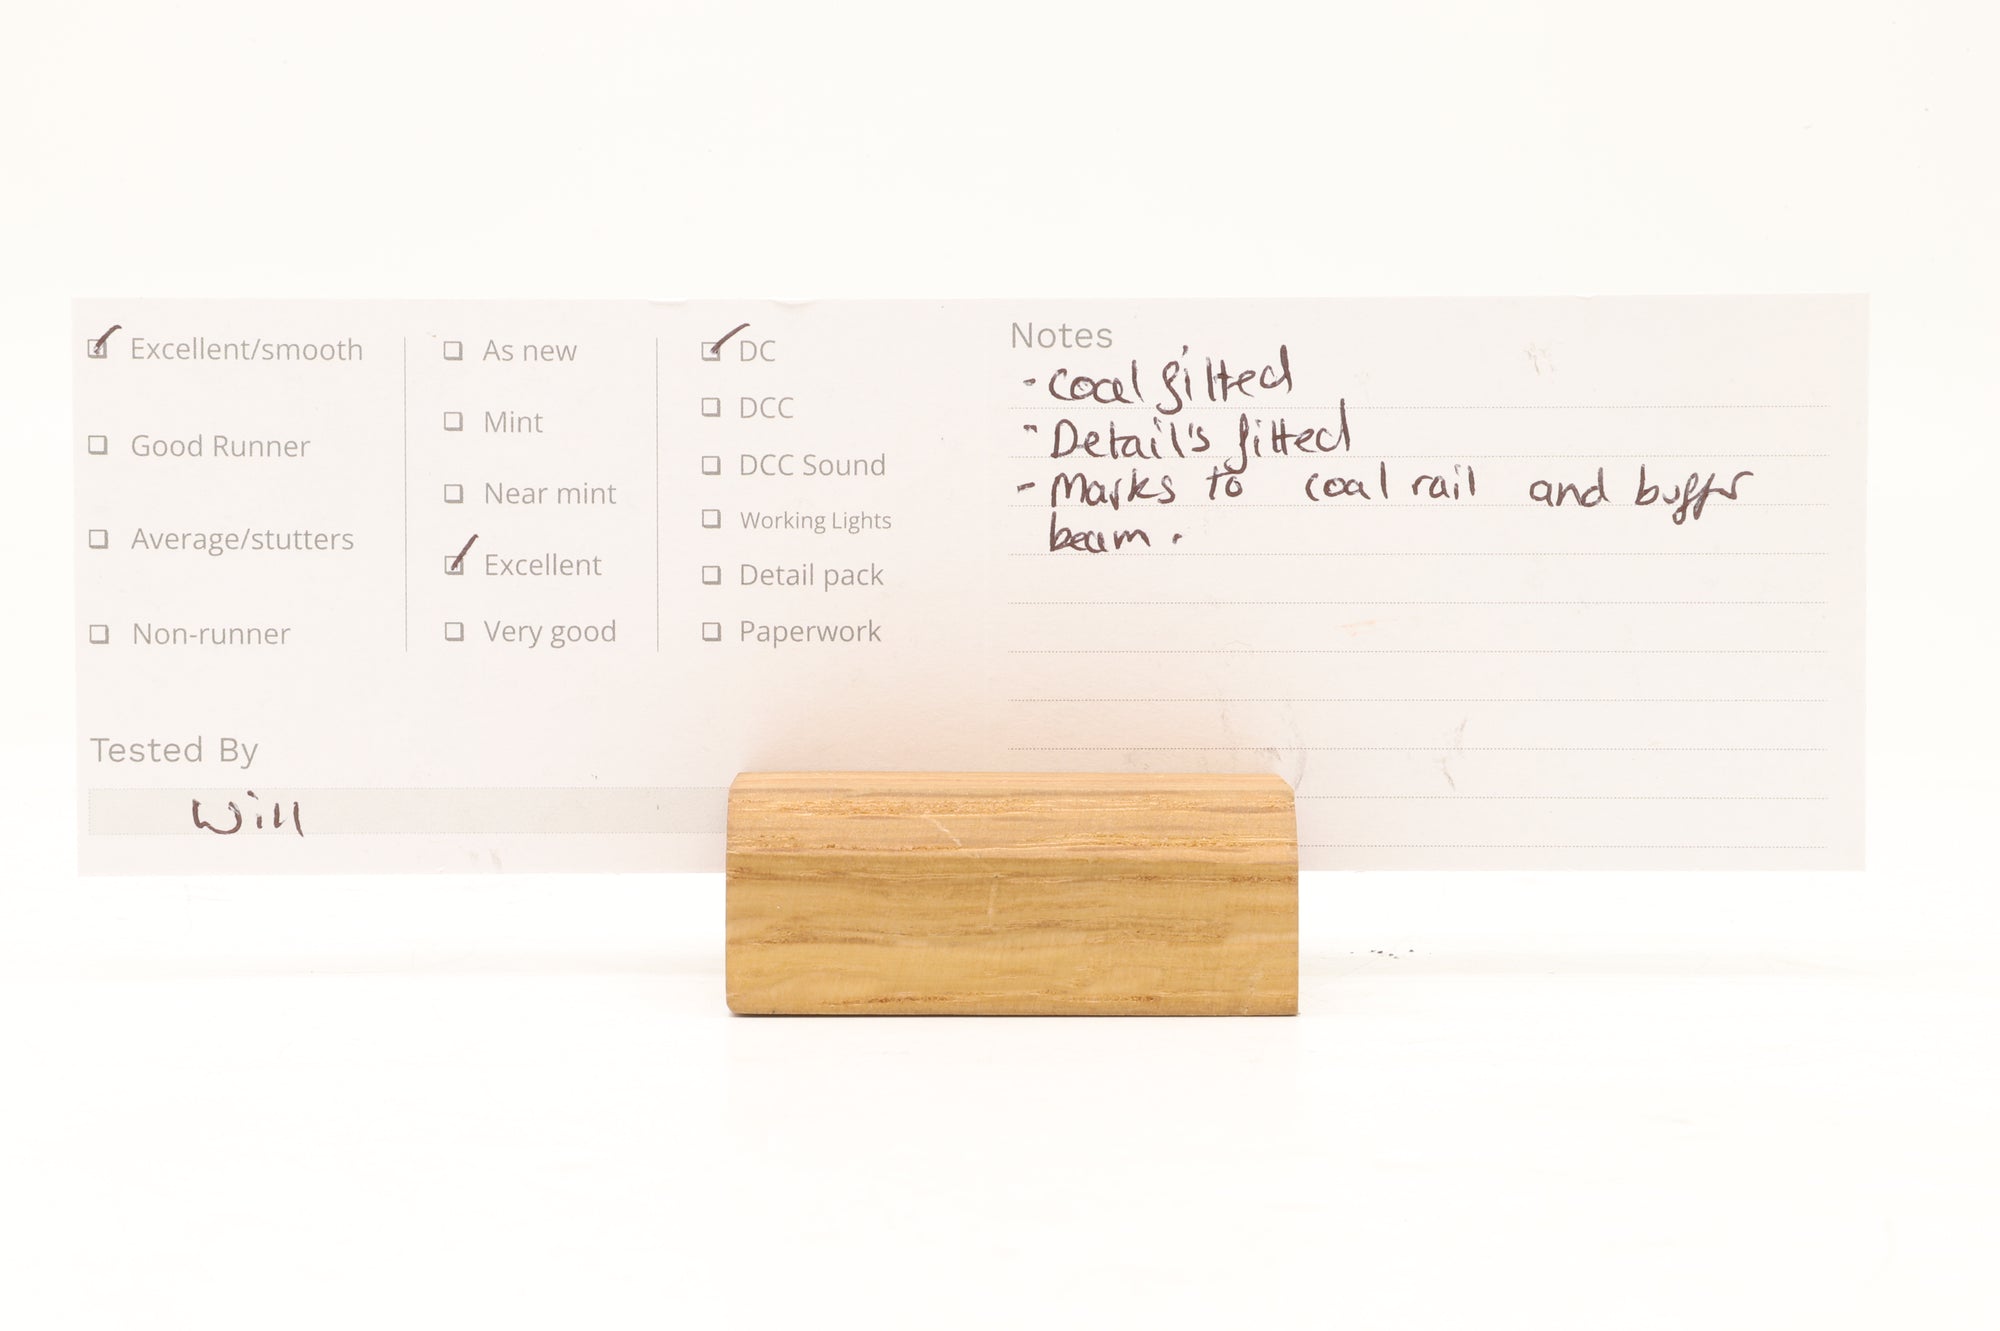 Excellent/smooth
Good Runner
Average/stutters
Non-runner
As new
Mint
Near mint
Excellent
Very good
DC
DCC
DCC Sound
Working Lights
Detail pack
Paperwork
Tested By
Will
Notes
- Coal fitted
- Detail's fitted
- Marks to coal rail and buffr
beam.